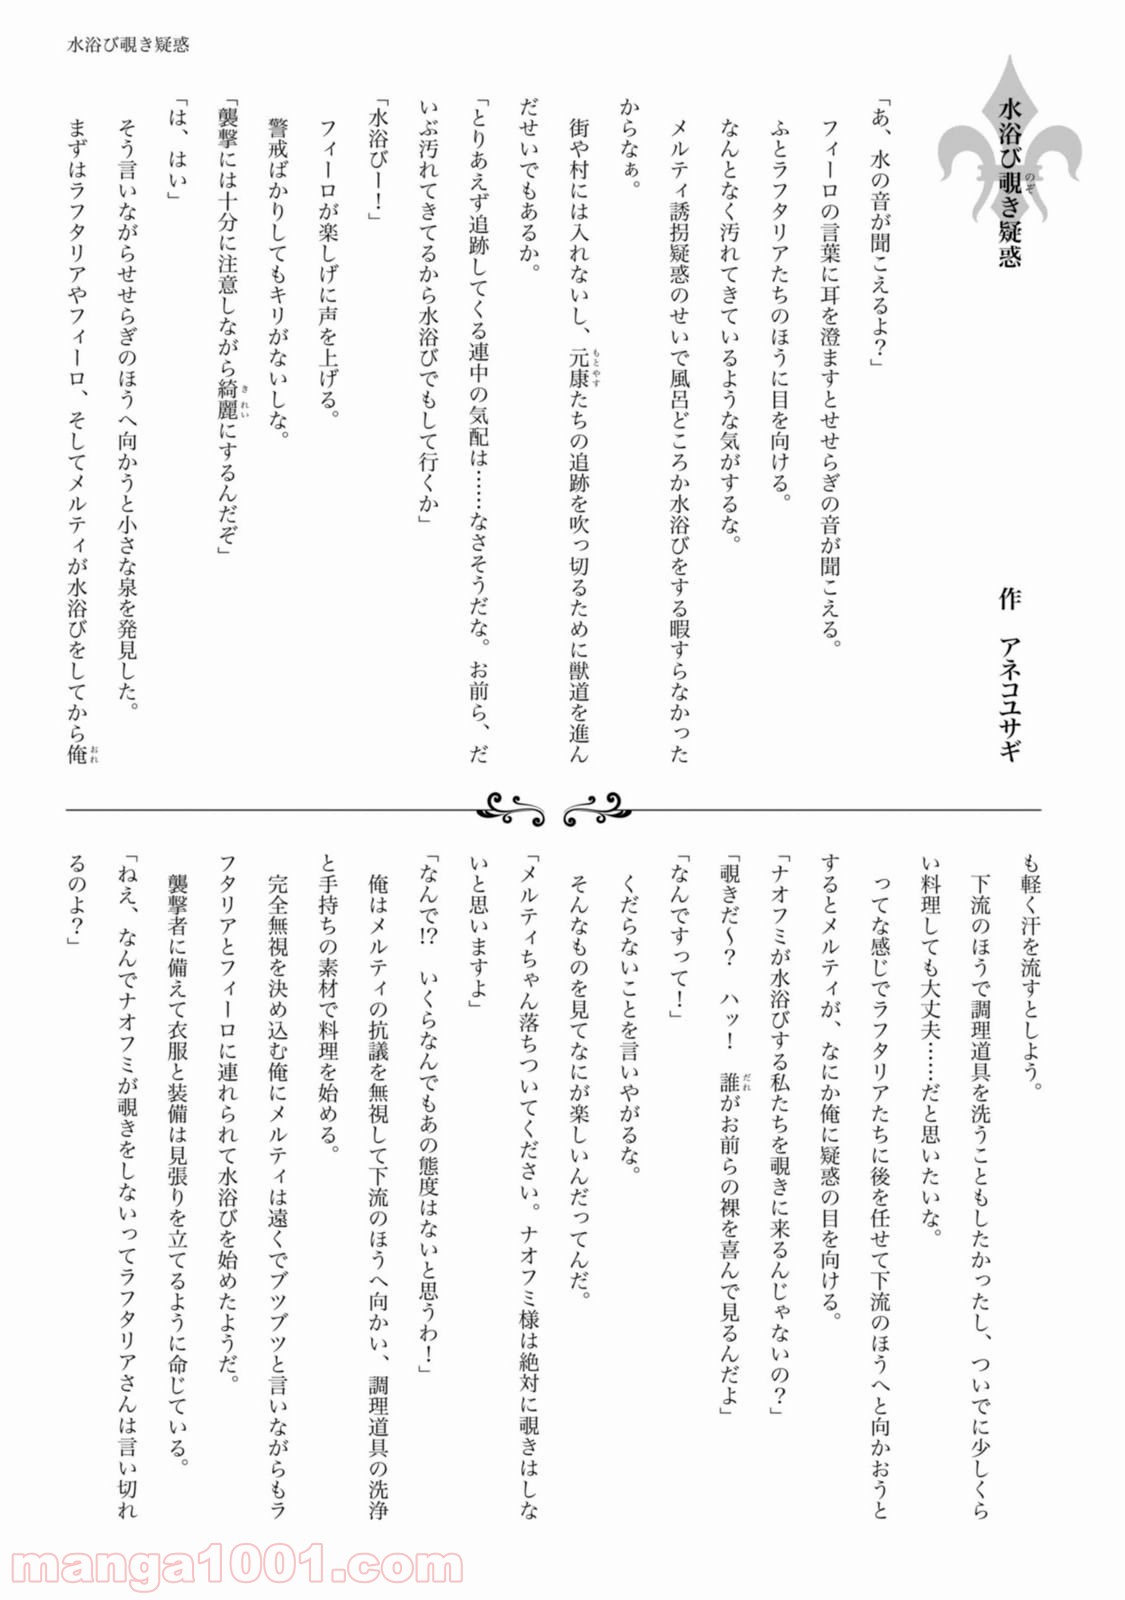 水浴び覗き疑惑
水浴び覗き疑惑
のぞ
作　アネコユサギ
「あ、水の音が聞こえるよ？」
フィーロの言葉に耳を澄ますとせせらぎの音が聞こえる。
ふとラフタリアたちのほうに目を向ける。
なんとなく汚れてきているような気がするな。
メルティ誘拐疑惑のせいで風呂どころか水浴びをする暇すらなかった
からなぁ。
街や村には入れないし、元康たちの追跡を吹っ切るために獣道を進ん
もとやす
だせいでもあるか。
「とりあえず追跡してくる連中の気配は……なさそうだな。お前ら、だ
いぶ汚れてきてるから水浴びでもして行くか」
「水浴びー！」
フィーロが楽しげに声を上げる。
警戒ばかりしてもキリがないしな。
「襲撃には十分に注意しながら綺麗にするんだぞ」
きれい
「は、はい」
そう言いながらせせらぎのほうへ向かうと小さな泉を発見した。
まずはラフタリアやフィーロ、そしてメルティが水浴びをしてから俺
おれ
も軽く汗を流すとしよう。
下流のほうで調理道具を洗うこともしたかったし、ついでに少しくら
い料理しても大丈夫……だと思いたいな。
ってな感じでラフタリアたちに後を任せて下流のほうへと向かおうと
するとメルティが、なにか俺に疑惑の目を向ける。
「ナオフミが水浴びする私たちを覗きに来るんじゃないの？」
「覗きだ〜？　ハッ！　誰がお前らの裸を喜んで見るんだよ」
だれ
「なんですって！」
くだらないことを言いやがるな。
そんなものを見てなにが楽しいんだってんだ。
「メルティちゃん落ちついてください。ナオフミ様は絶対に覗きはしな
いと思いますよ」
「なんで!?　いくらなんでもあの態度はないと思うわ！」
俺はメルティの抗議を無視して下流のほうへ向かい、調理道具の洗浄
と手持ちの素材で料理を始める。
完全無視を決め込む俺にメルティは遠くでブツブツと言いながらもラ
フタリアとフィーロに連れられて水浴びを始めたようだ。
襲撃者に備えて衣服と装備は見張りを立てるように命じている。
「ねえ、なんでナオフミが覗きをしないってラフタリアさんは言い切れ
るのよ？」
manga1001.com